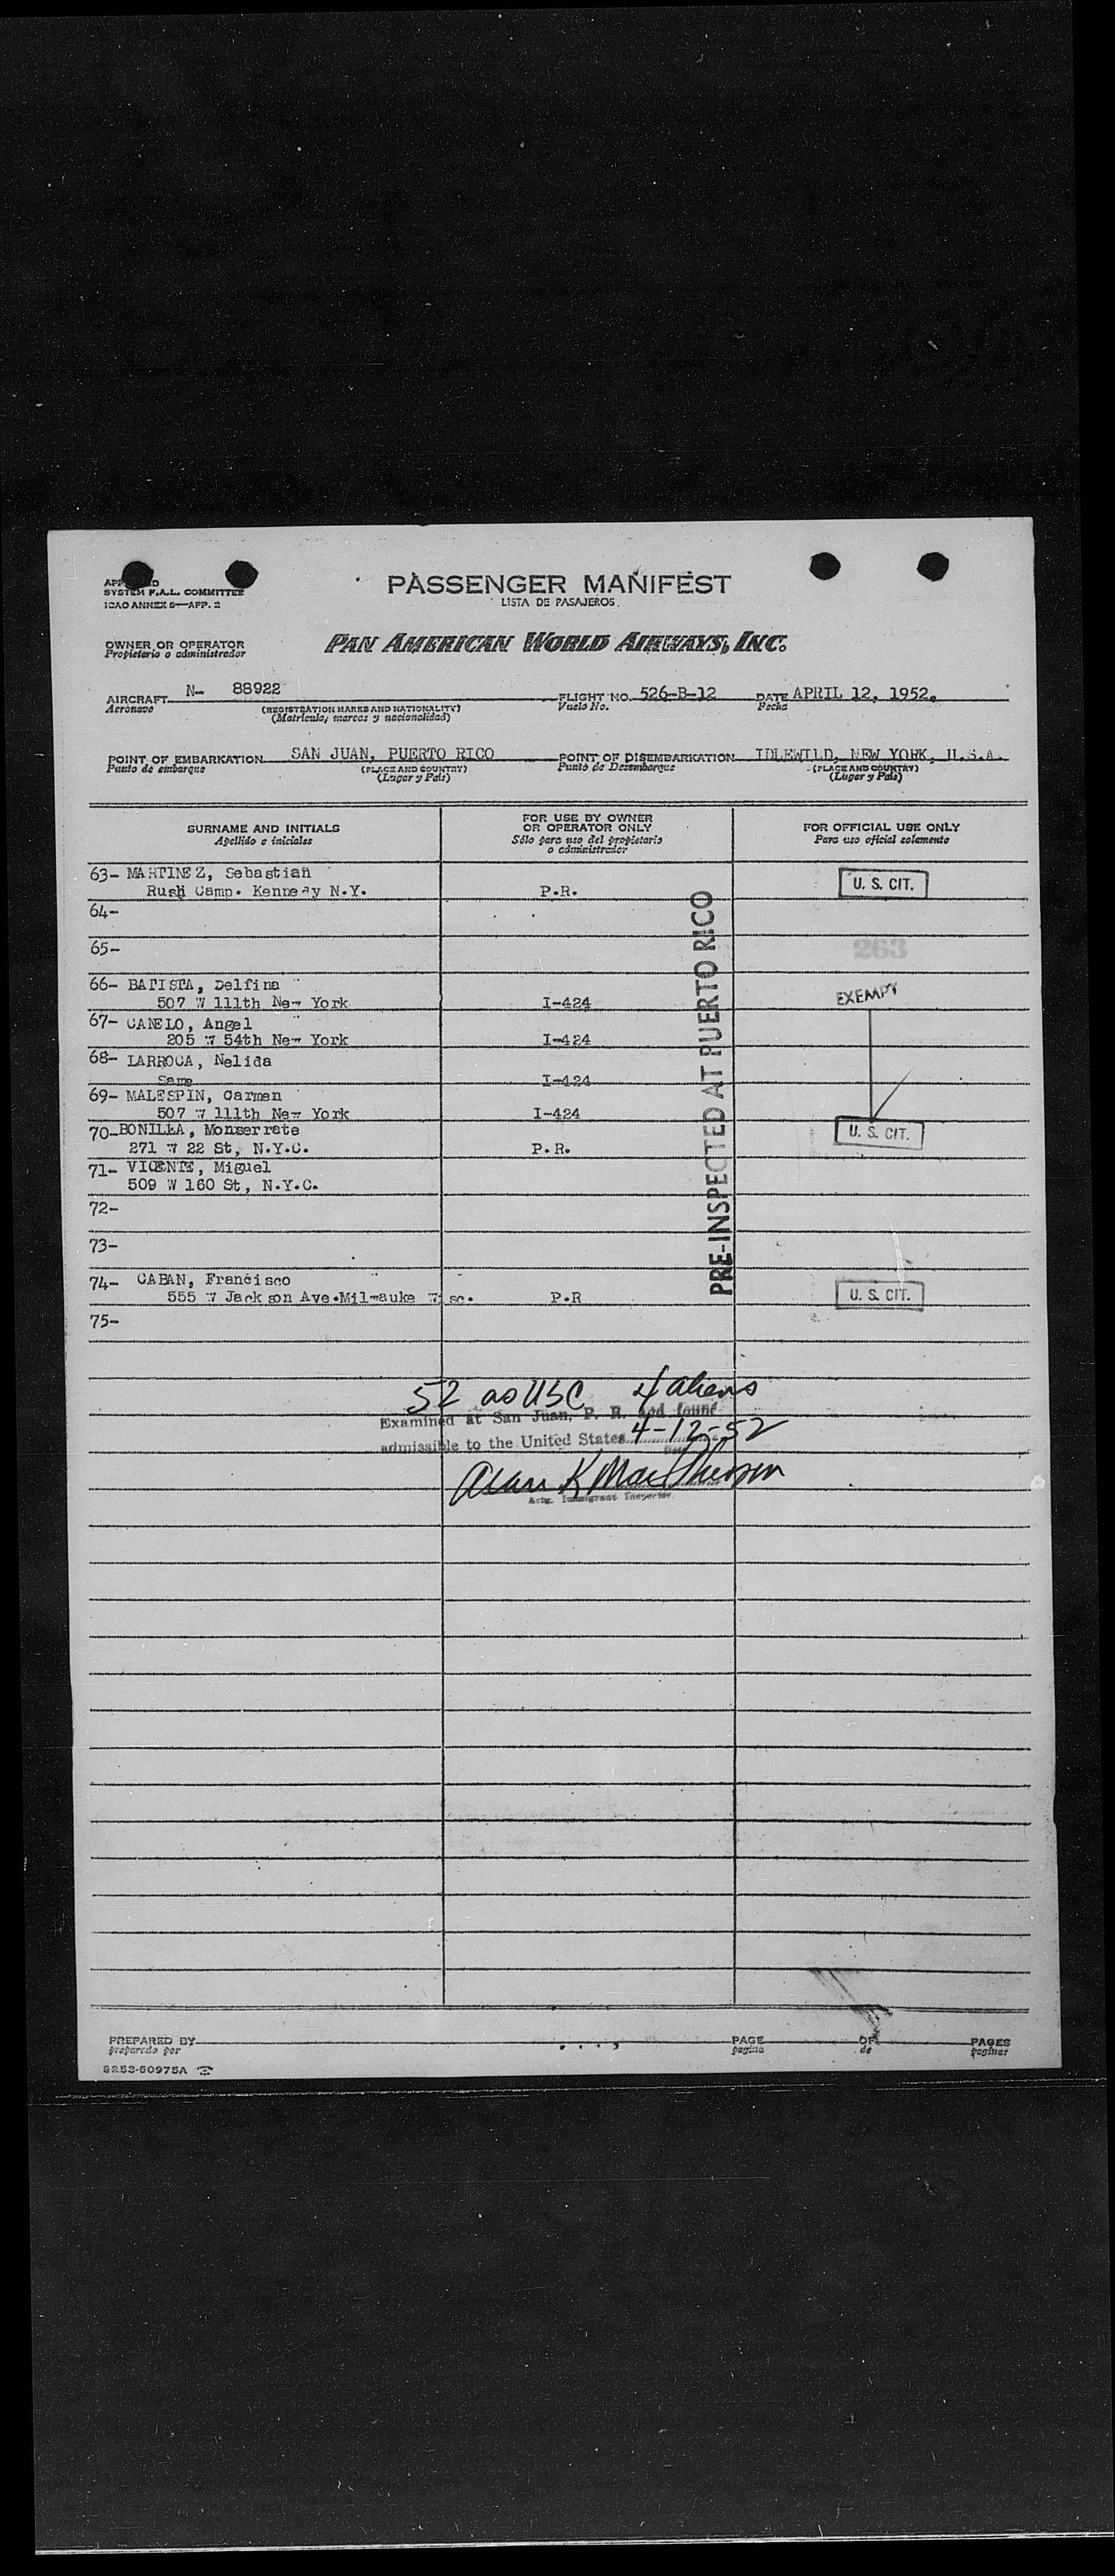 APPROVED
SYSTEM F.A.L. COMMITTEE
ICAO ANNEX 9—APP. 2
PASSENGER MANIFEST
LISTA DE PASAJEROS
OWNER OR OPERATOR
Propietario o administrador
PAN AMERICAN WORLD AIRWAYS, INC.
AIRCRAFT N- 88922 FLIGHT NO. 526-B-12 DATE APRIL 12, 1952.
Aeronave (REGISTRATION MARKS AND NATIONALITY) Vuelo No. Fecha
(Matricula, marcas y nacionalidad)
POINT OF EMBARKATION SAN JUAN, PUERTO RICO POINT OF DISEMBARKATION IDLEWILD, NEW YORK, U.S.A.
Punto de embarque (PLACE AND COUNTRY) Punto de Desembarque (PLACE AND COUNTRY)
(Lugar y País) (Lugar y País)
SURNAME AND INITIALS
Apellido e iniciales
FOR USE BY OWNER
OR OPERATOR ONLY
Sólo para uso del propietario
o administrador
FOR OFFICIAL USE ONLY
Para uso oficial solamente
63- MARTINEZ, Sebastian
Rush Camp. Kennedy N.Y. P.R. U. S. CIT.
64-
65- 263
66- BATISTA, Delfina
507 W 111th New York I-424 EXEMPT
67- CANELO, Angel
205 W 54th New York I-424
68- LARROCA, Nelida
Same I-424
69- MALESPIN, Carmen
507 W 111th New York I-424
70- BONILLA, Monserrate U. S. CIT.
271 W 22 St, N.Y.C. P.R.
71- VICENTE, Miguel
509 W 160 St, N.Y.C.
72-
73-
74- CABAN, Francisco
555 W Jackson Ave.Milwauke Wisc. P.R U. S. CIT.
75-
PRE-INSPECTED AT PUERTO RICO
52 as USC 4 aliens
Examined at San Juan, P. R. and found
admissible to the United States 4-12-52
Alan K MacPherson
Actg. Immigrant Inspector
PREPARED BY PAGE OF PAGES
preparado por pagina de paginas